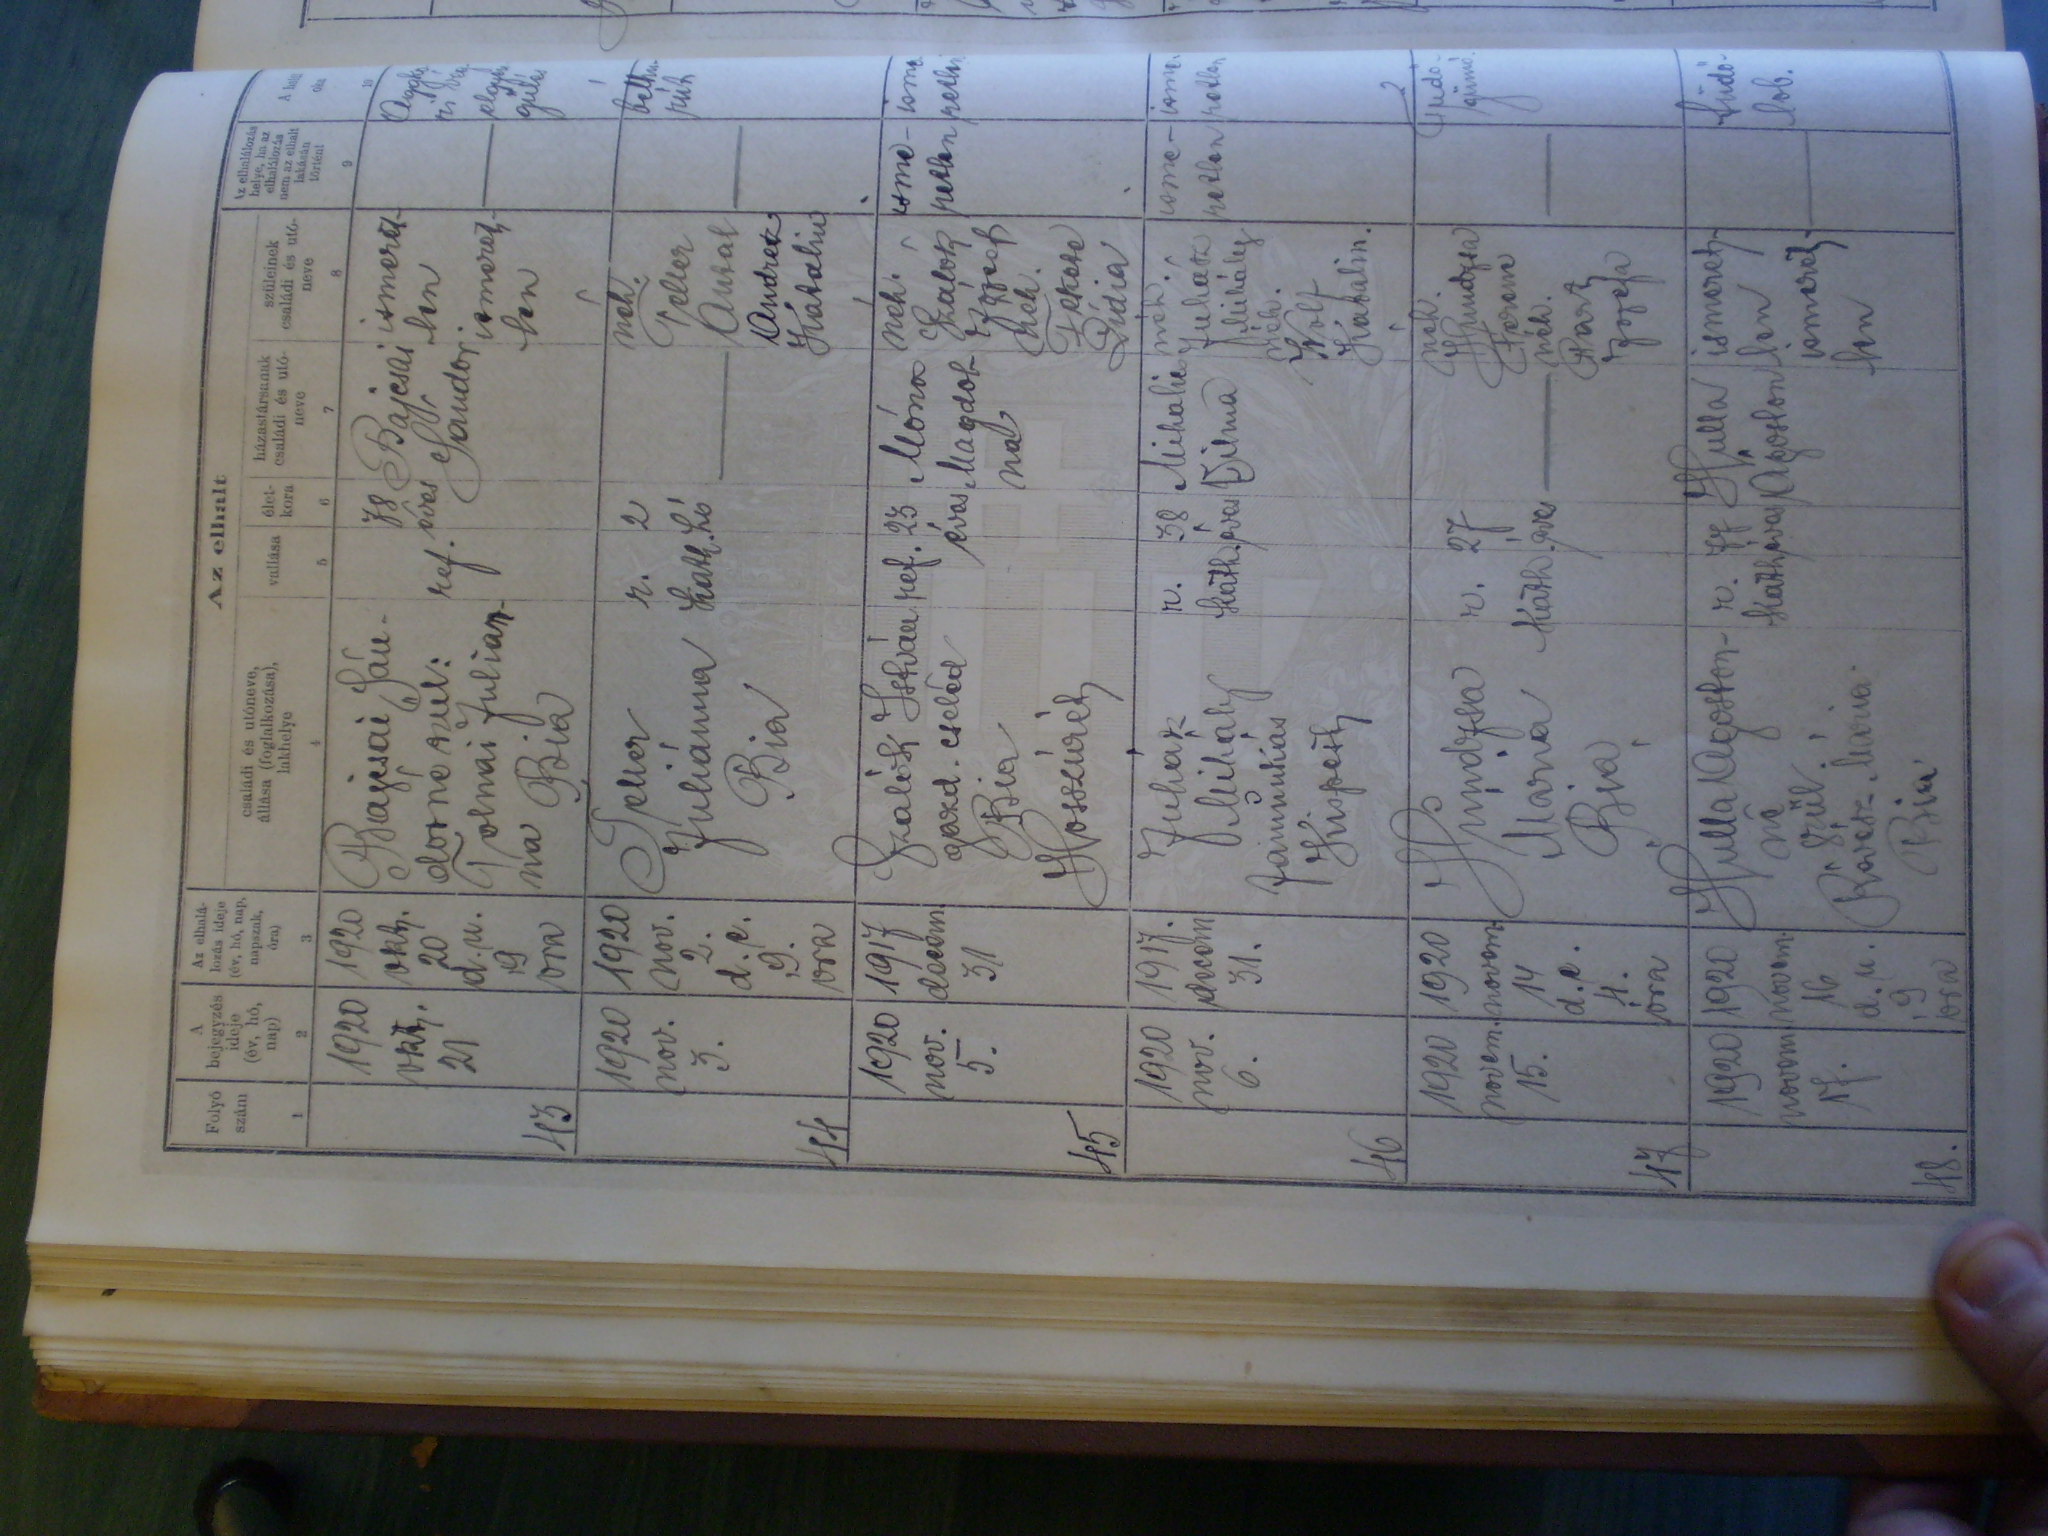 Az elhalt
Folyó szám
A bejegyzés ideje (év, hó, nap)
Az elhalálozás ideje (év, hó, nap, napszak, óra)
családi és utóneve, állása (foglalkozása), lakhelye
vallása
életkora
házastársának családi és utóneve
szüleinek családi és utóneve
Az elhalálozás helye, ha az elhalálozás nem az elhalt lakásán történt
A halál oka
1 2 3 4 5 6 7 8 9 10
43
1920
okt.
21
1920
okt.
20
d. u.
9
óra
Bajcsai Sán-
dorné szül:
Tolnai Julian-
na Bia
ref.
78
éves
Bajcsai
Sándor
ismeret-
len
ismeret-
len
44
1920
nov.
3.
1920
nov.
2.
d. e.
9.
óra
Peller
Juliánna
Bia
r.
kath.
2
hó
néh.
Peller
Antal
Andrek
Katalin
45
1920
nov.
5.
1917
decem.
31
Szalók István
gazd. cseléd
Bia
Hosszúrét
ref.
23
éves
Móna
Magdol-
na
néh.
Szalók
József
néh.
Fekete
Lidia
isme-
retlen
isme
retlen
46
1920
nov.
6.
1917.
decem
31.
Juhák
Mihály
Kispest
r.
kath.
38
éves
Mihalic
Vilma
néh.
Juhák
Mihály
néh.
Wolf
Katalin.
isme-
retlen
isme
retlen
47
1920
novem.
15.
1920
novem.
14
d. e.
4.
óra
Hundzsa
Mária
Bia
r.
kath.
27
éves
néh.
Hundzsa
Ferenc
néh.
József
48.
1920
novem
17.
1920
novem.
16
d. u.
9
óra
Hulla Ágoston-
né
szül.
Mária
Bia
r.
kath.
77
éves
Hulla
Ágoston
ismeret-
len
ismeret-
len
tüdő-
lob.